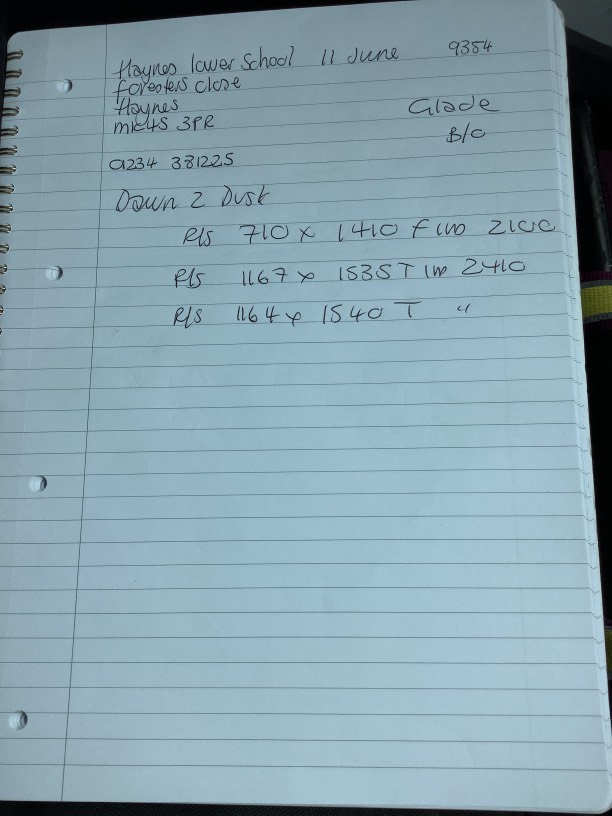 Haynes lower School 11 June 9354
foresters close
Haynes
mk45 3PR
Glade
B/O
01234 381225
Dawn 2 Dusk
R/S 710 x 1410 F 2100
R/S 1167 x 1535 T 2410
R/S 1164 x 1540 T "